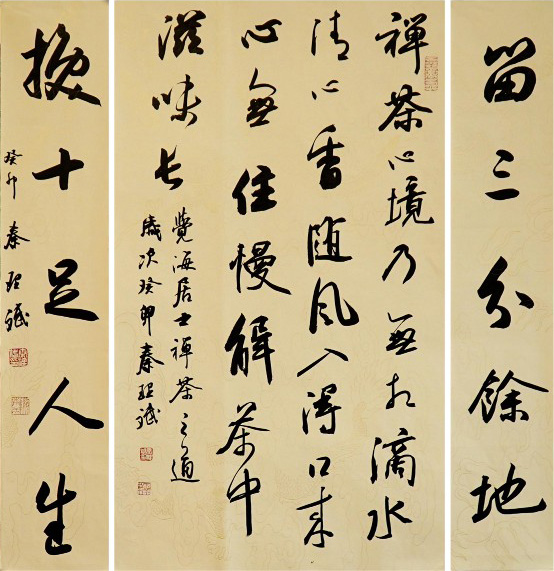 留三分餘地
禪茶心境乃無相滴水
清心香随風入得口來
心無住慢解茶中
滋味長
覺海居士禪茶之道
歲次癸卯秦
換十足人生
癸卯秦